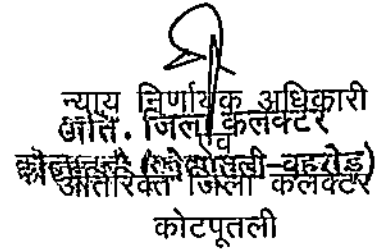 न्याय निर्णायक अधिकारी
अति. जिला कलेक्टर
एवं
कोटपूतली (कोटपूतली-बहरोड़)
अतिरिक्त जिला कलेक्टर
कोटपूतली